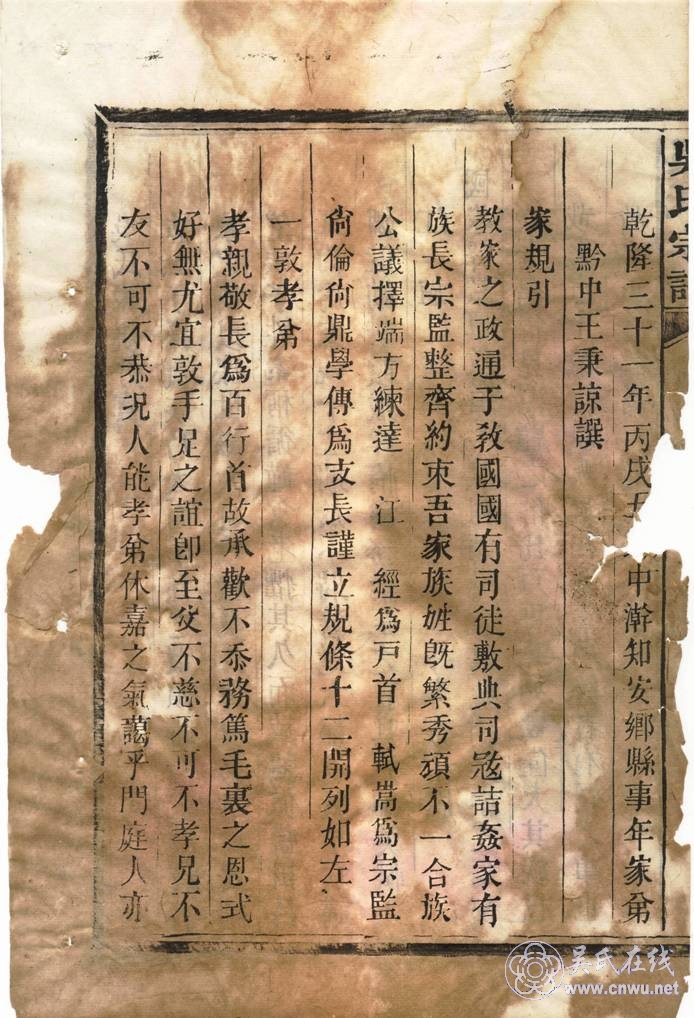 吳氏宗譜
乾隆三十一年丙戌中澣知安鄉縣事年家弟
黔中王秉諒譔
家規引
教家之政通于教國國有司徒敷典司寇詰姦家有
族長宗監整齊約束吾家族姓既繁秀頑不一合族
公議擇端方練達 江 經為戸首 軾嵩為宗監
尙倫尙鼎學傳為支長謹立規條十二開列如左
一敦孝弟
孝親敬長為百行首故承歡不忝務篤毛裏之恩式
好無尤宜敦手足之誼卽至父不慈不可不孝兄不
友不可不恭況人能孝弟休嘉之氣藹乎門庭人亦
吴氏在线
www.cnwu.net